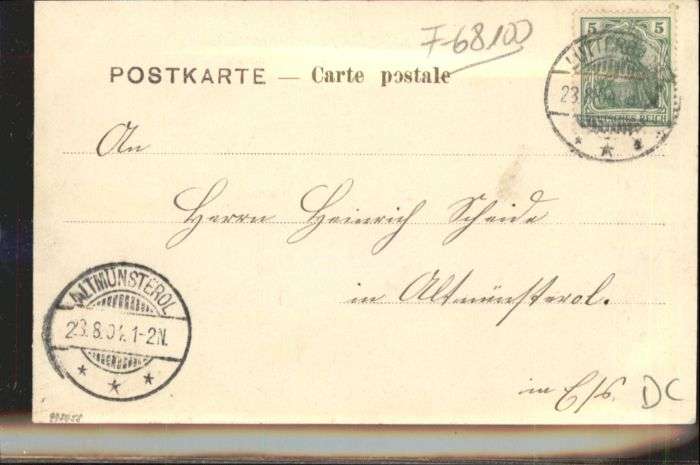 F-68100
POSTKARTE — Carte postale
5 5
DEUTSCHES REICH
LUTTERB
23.8.
An
Herrn Heinrich Scheide
in Altmünsterol.
ALTMÜNSTEROL
23.8.04.1-2N.
in E/s.
DC